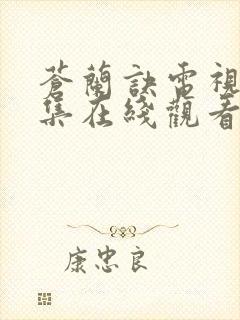 蒼蘭訣電視
集在綫觀看
康忠良